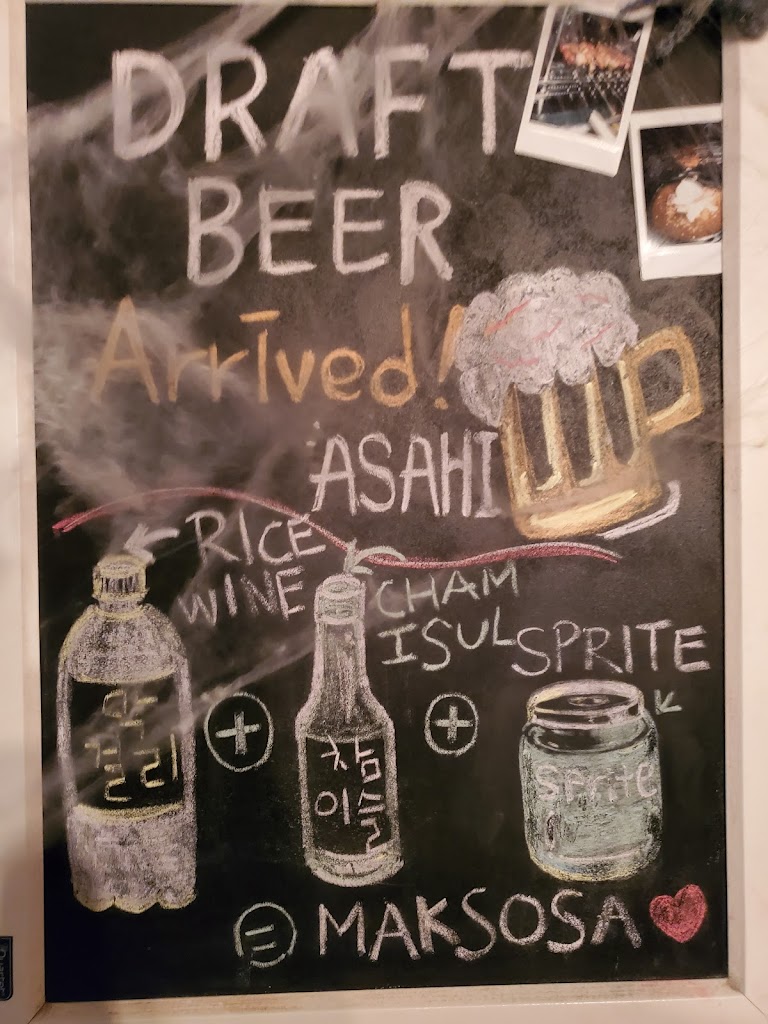 DRAFT
BEER
Arrived!
ASAHI
RICE
WINE
CHAM
ISUL
SPRITE
막
걸리
참
이슬
Sprite
= MAKSOSA
+
+